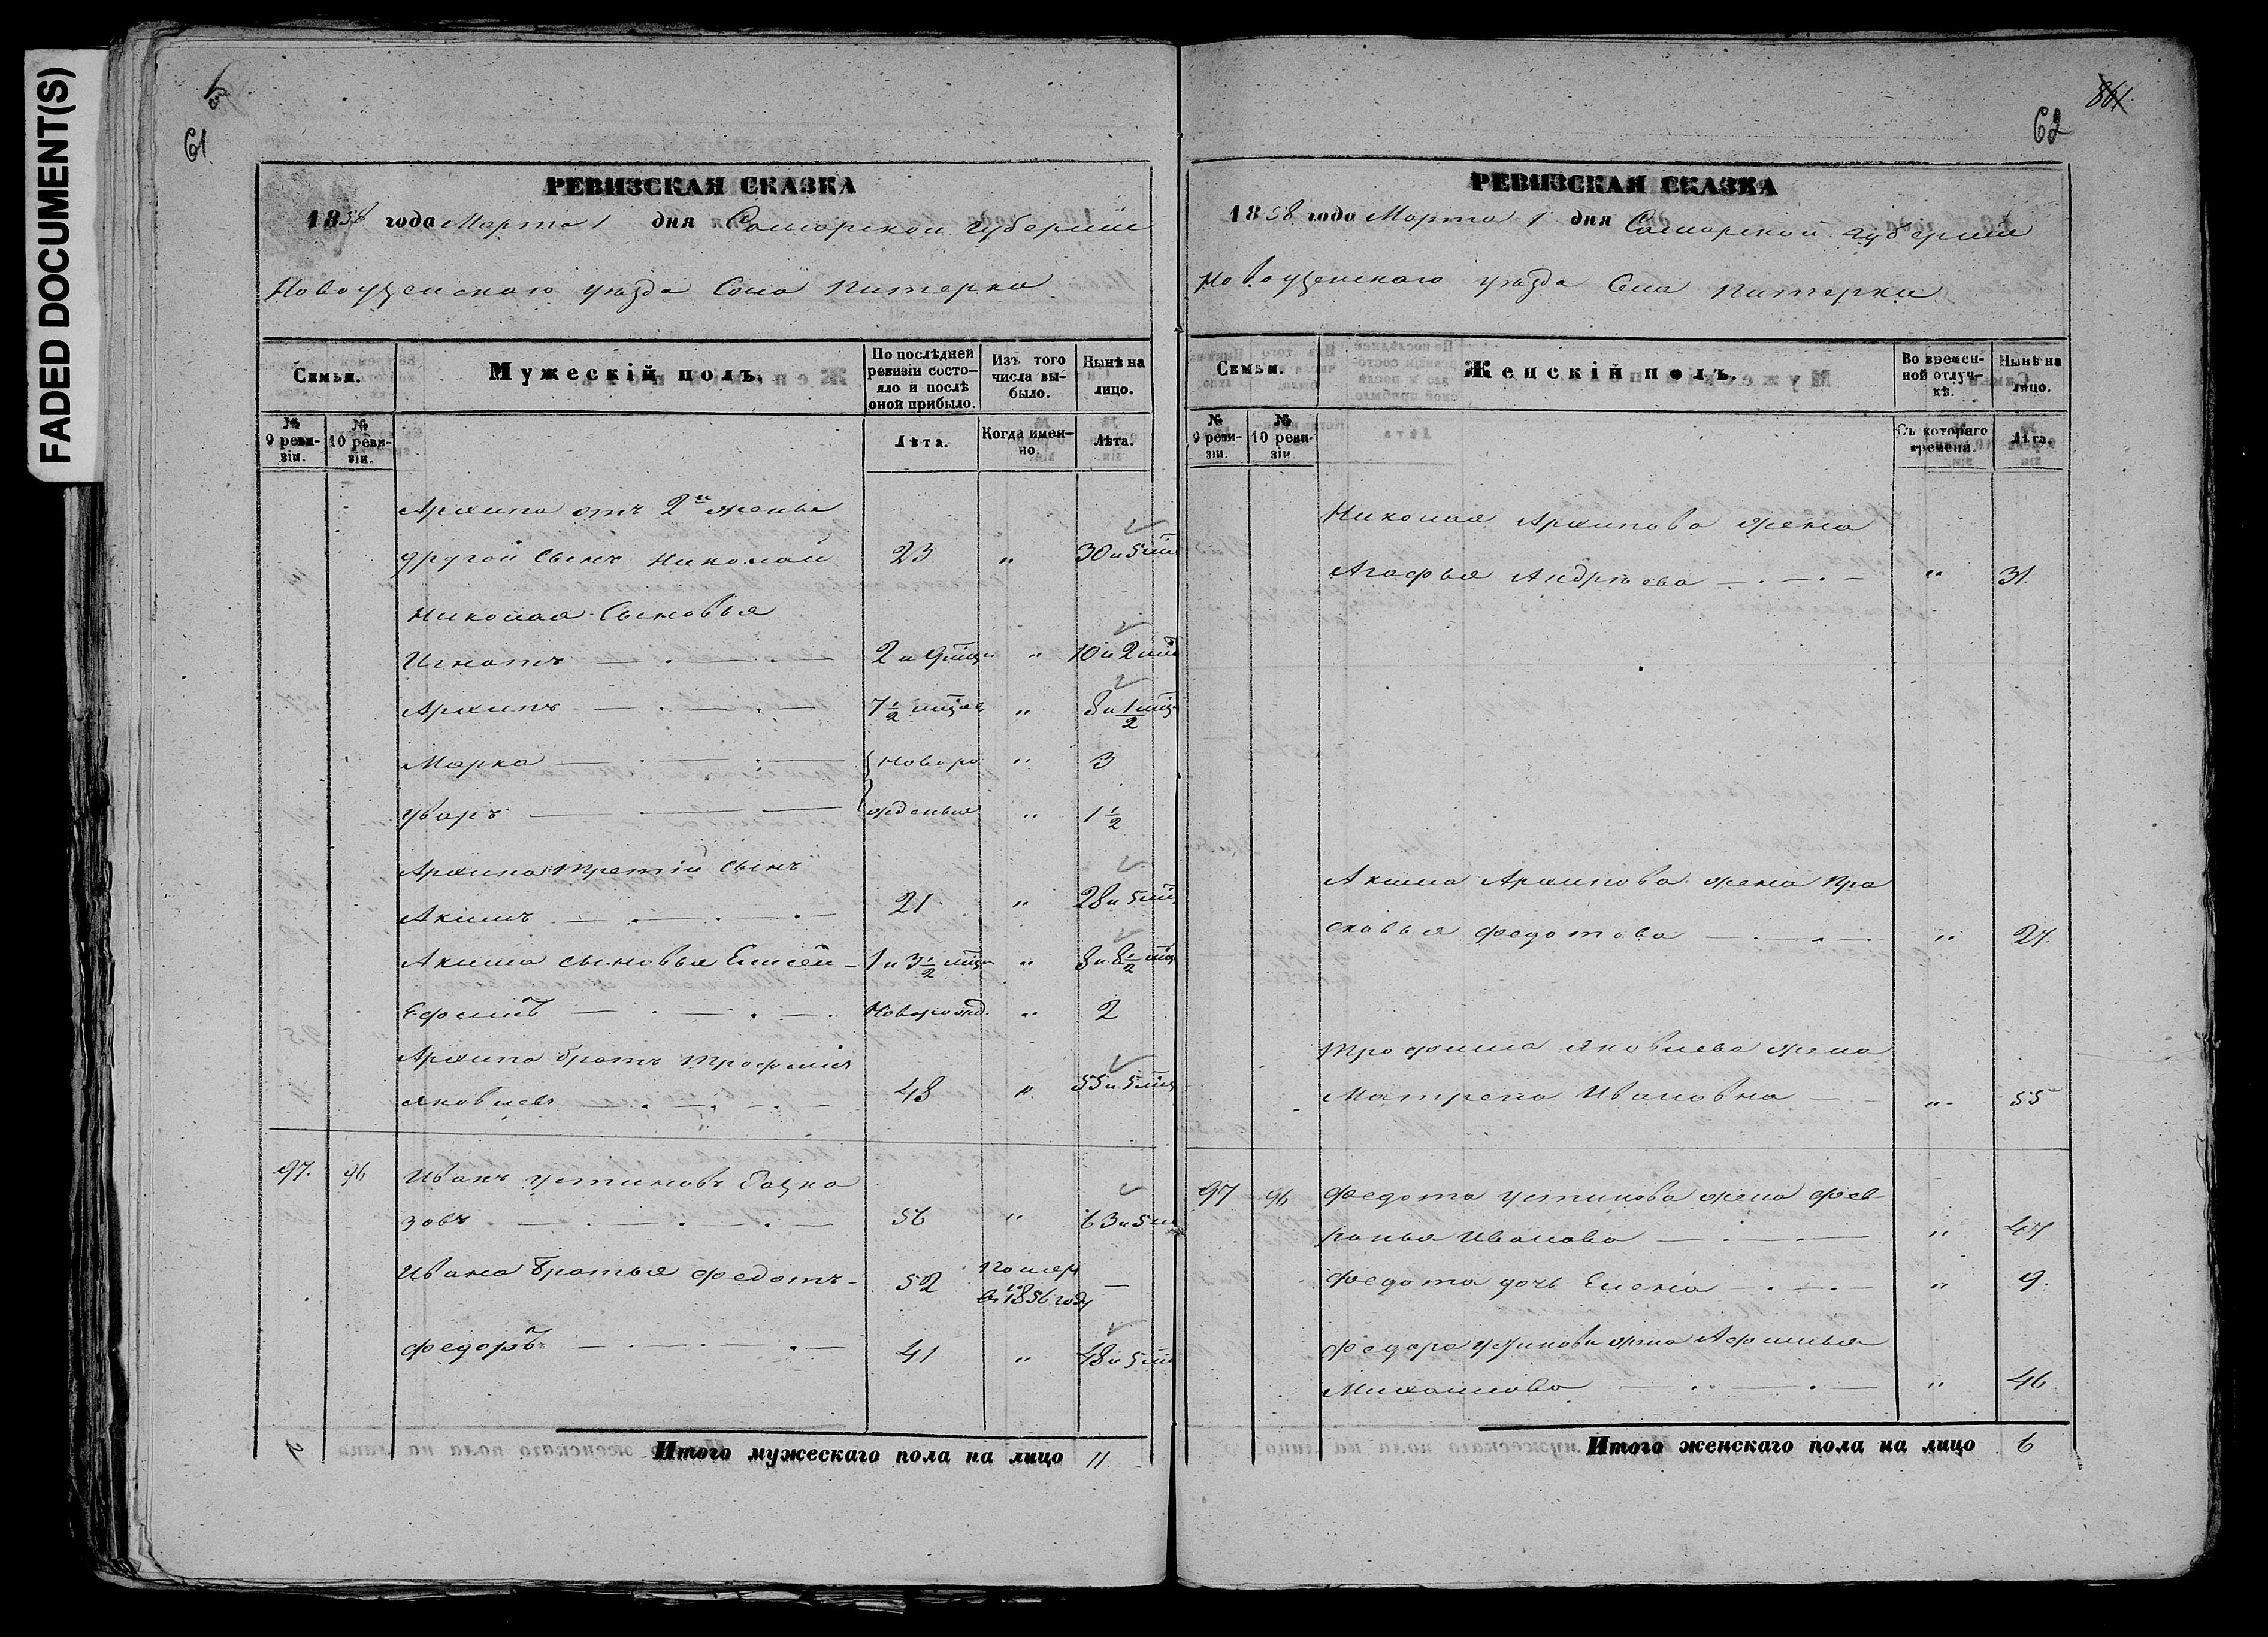 FADED DOCUMENT(S)
61
РЕВИЗСКАЯ СКАЗКА
1858 года Марта 1 дня Самарской Губернiи
Новоузенскаго уѣзда Села Питерка
Семьи.
Мужескій полъ.
По послѣдней ревизіи состояло и послѣ оной прибыло.
Изъ того числа выбыло.
Нынѣ на лицо.
№ 9 ревизіи.
№ 10 ревизіи.
Лѣта.
Когда именно.
Лѣта.
Архипа отъ 2й жены
другой сынъ Николай 23 " 30 и 5 мц
Николая Сыновья
Игнатъ 2 и 9 мцн " 10 и 2 мц
Архипъ 7 1/2 мцов " 8 и 1/2 мц
Марка Новоро " 3
Уваръ жденыя " 1 1/2
Архипа третій сынъ
Акимъ 21 " 28 и 5 мц
Акима сыновья Елисей 1 и 3 1/2 мцн " 8 и 8 1/2 мц
Ефимъ Новорожд. " 2
Архипа братъ Трофимъ
Яковлевъ 48 " 55 и 5 мц
97. 96 Иванъ Устиновъ
зовъ 56 " 63 и 5 м
Ивана братья Федотъ 52 Помер въ 1856 году —
Федоръ 41 " 48 и 5 мц
Итого мужескаго пола на лицо 11
861
62
РЕВИЗСКАЯ СКАЗКА
1858 года Марта 1 дня Самарской Губернiи
Новоузенскаго уѣзда Села Питерки
Семьи.
Женскій полъ.
Во временной отлучкѣ.
Нынѣ на лицо.
№ 9 ревизіи.
№ 10 ревизіи
Съ котораго времени.
Лѣта.
Николая Архипова жена
Агафья Андрѣева " 31.
Акима Архипова жена Пра
сковья Федотова " 27.
Трофима Яковлева жена
Матрена Ивановна " 55
97 96 Федота Устинова жена Фев
ронья Иванова " 47
Федота дочь Елена " 9.
Федора Устинова жена Афимья
Михайлова " 46
Итого женскаго пола на лицо 6